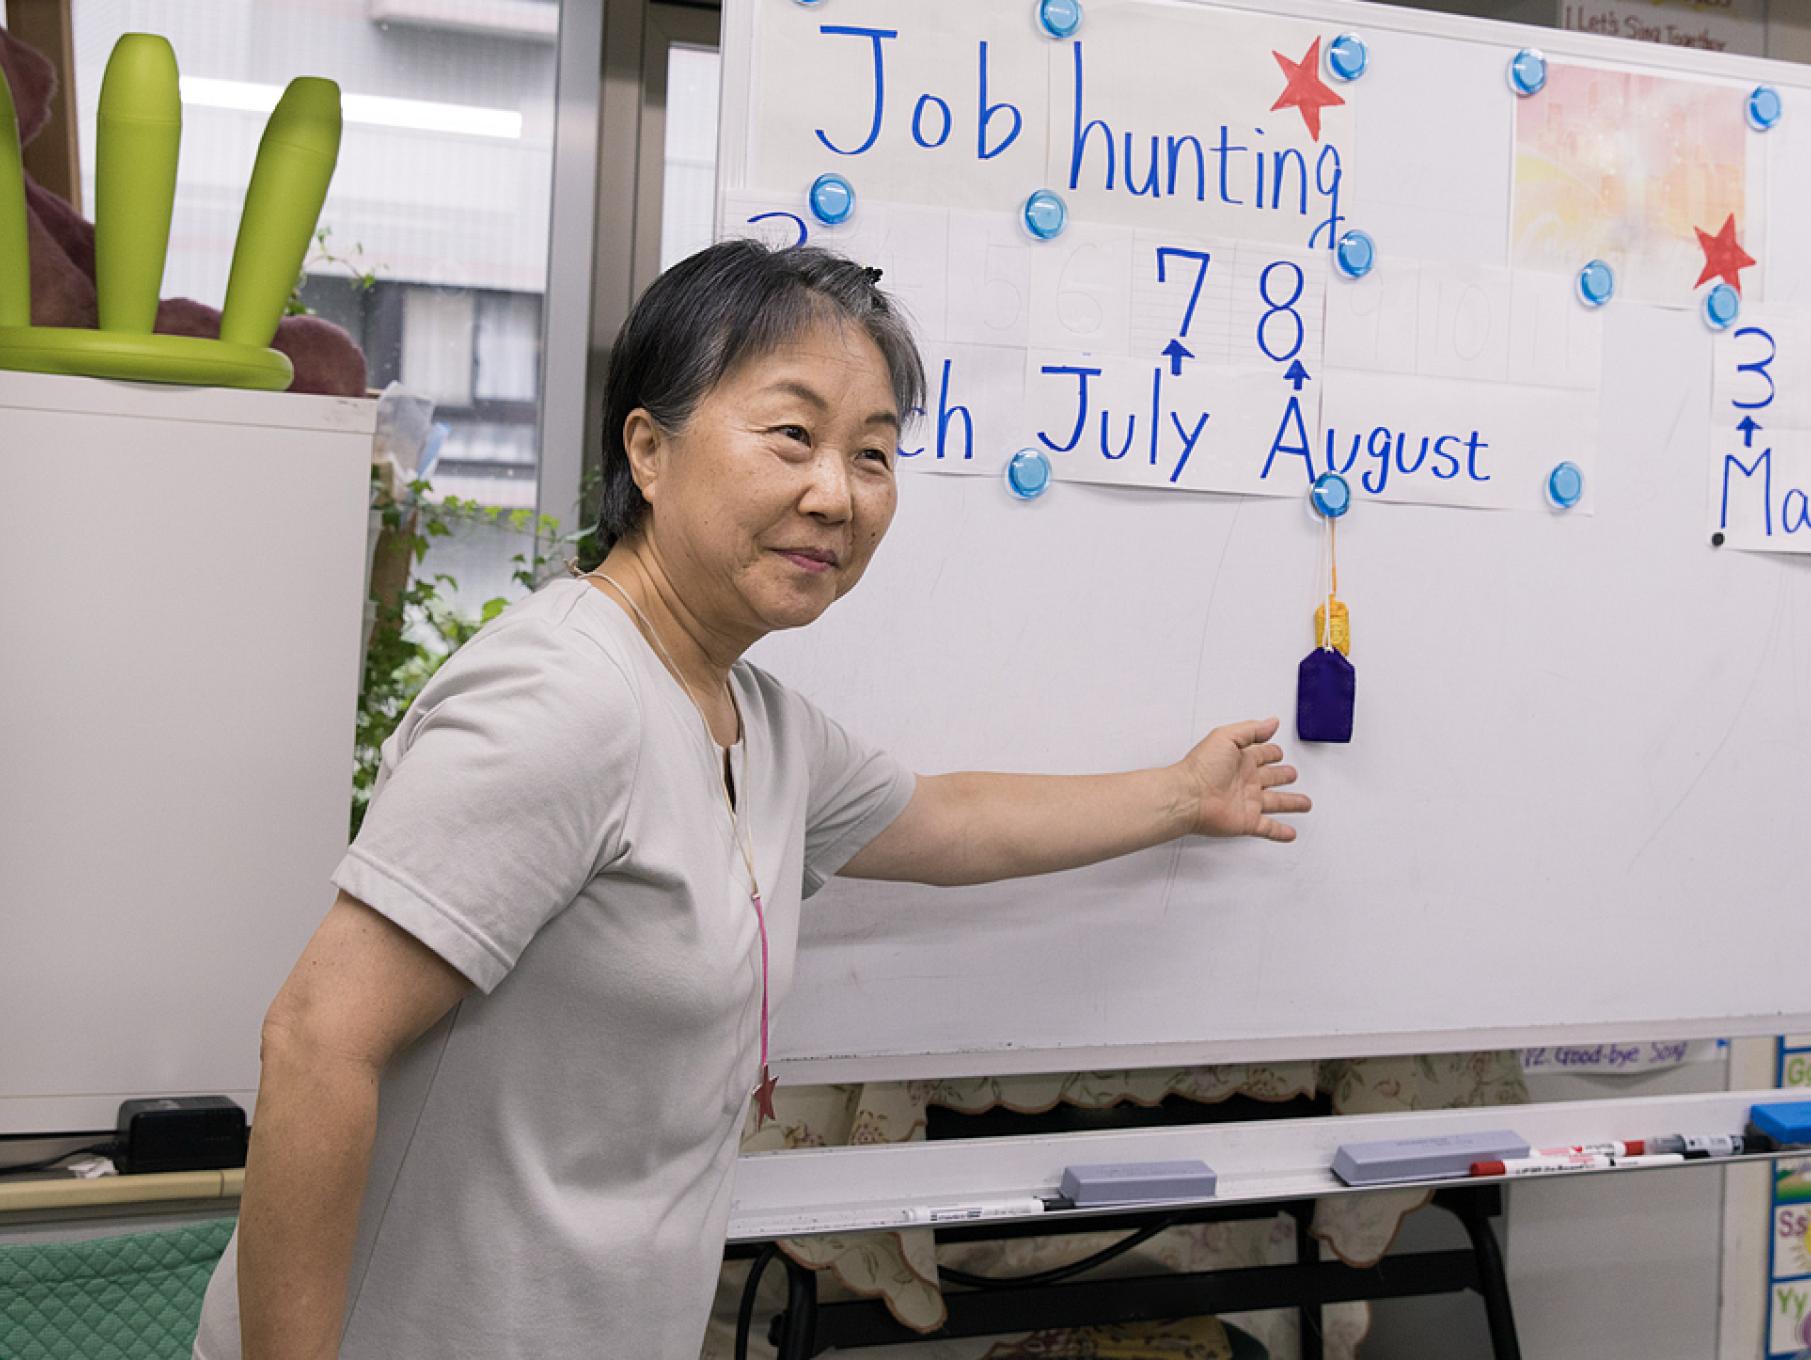 Job hunting
1 Let's Sing Together
3 5 6 7 8 9 10
ch July August
3
Ma
12. Good-bye Song
Gg
Ss
Yy